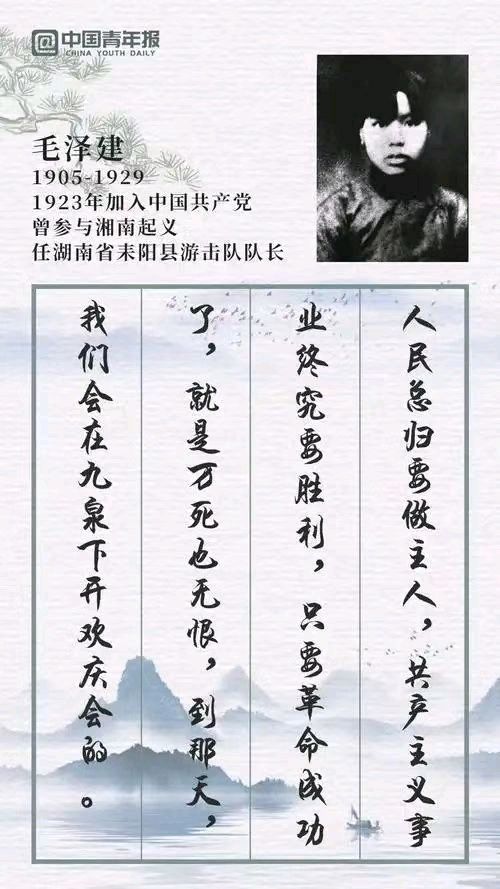 @中国青年报
CHINA YOUTH DAILY
毛泽建
1905-1929
1923年加入中国共产党
曾参与湘南起义
任湖南省耒阳县游击队队长
人民总归要做主人，共产主义事
业终究要胜利，只要革命成功
了，就是万死也无恨，到那天，
我们会在九泉下开欢庆会的。